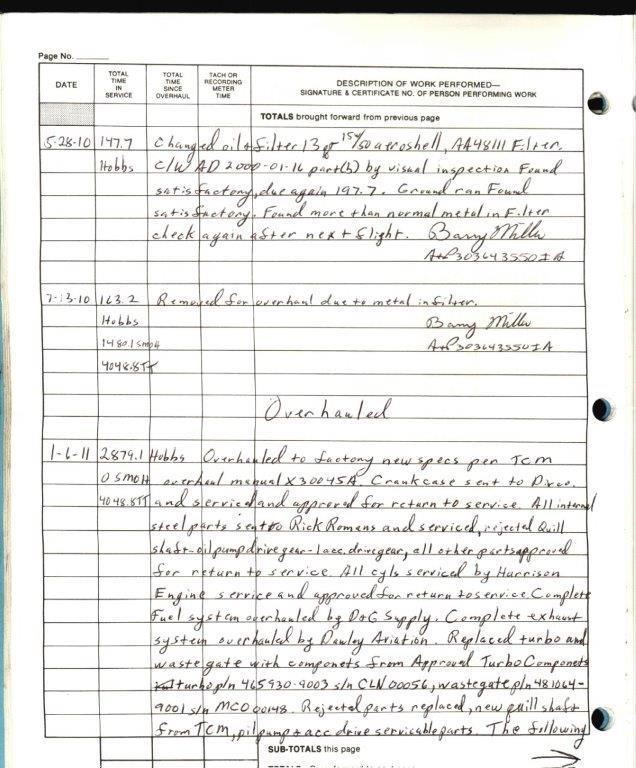 Page No.
DATE
TOTAL TIME IN SERVICE
TOTAL TIME SINCE OVERHAUL
TACH OR RECORDING METER TIME
DESCRIPTION OF WORK PERFORMED—
SIGNATURE & CERTIFICATE NO. OF PERSON PERFORMING WORK
TOTALS brought forward from previous page
5-28-10 147.7 Changed oil + filter 13 qt 15w/50 aeroshell, AA48111 Filter.
Hobbs C/W AD 2000-01-16 part(b) by visual inspection Found
satisfactory, due again 197.7. Ground ran Found
satisfactory. Found more than normal metal in Filter
check again after next flight. Barry Miller
A+P303643550IA
7-13-10 163.2 Removed for overhaul due to metal in filter.
Hobbs Barry Miller
1480.1 SMOH A+P303643550IA
4048.8TT
Overhauled
1-6-11 2879.1 Hobbs Overhauled to factory new specs per TCM
0 SMOH overhaul manual X30045A. Crankcase sent to Divco.
4048.8TT and serviced and approved for return to service. All internal
steel parts sent to Rick Romans and serviced, rejected Quill
shaft-oil pump drive gear-1 acc. drive gear, all other parts approved
for return to service. All cyls serviced by Harrison
Engine service and approved for return to service. Complete
Fuel system overhauled by D+G Supply. Complete exhaust
system overhauled by Dawley Aviation. Replaced turbo and
wastegate with componets from Approved Turbo Componets
turbo p/n 465930-9003 s/n CLN00056, wastegate p/n 481064-
9001 s/n MCO00148. Rejected parts replaced, new quill shaft
from TCM, oil pump + acc drive servicable parts. The following
SUB-TOTALS this page